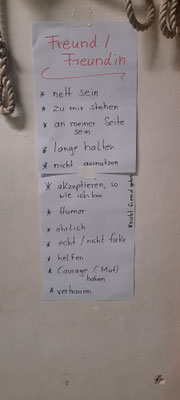 Freund /
Freundin
* nett sein
* zu mir stehen
* an meiner Seite
sein
* lange halten
* nicht ausnutzen
* akzeptieren, so
wie ich bin
* Humor
* ehrlich
* echt / nicht fake
* helfen
* Courage (Mut)
haben
* vertrauen